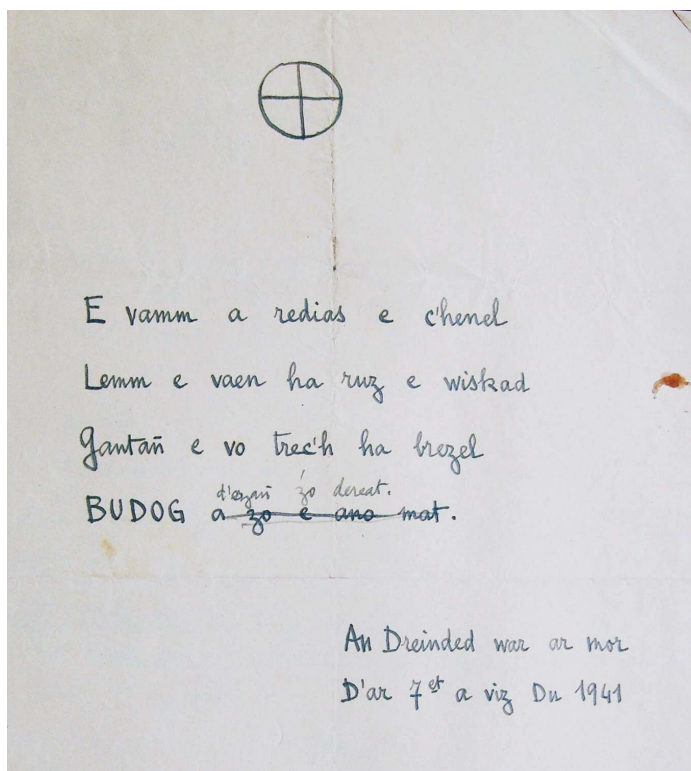 E vamm a redias e c'henel
Lemm e vaen ha ruz e wiskad
Gantañ e vo trec'h ha brezel
d'ezañ zo dereat.
BUDOG a zo e ano mat.
An Dreinded war ar mor
D'ar 7et a viz Du 1941